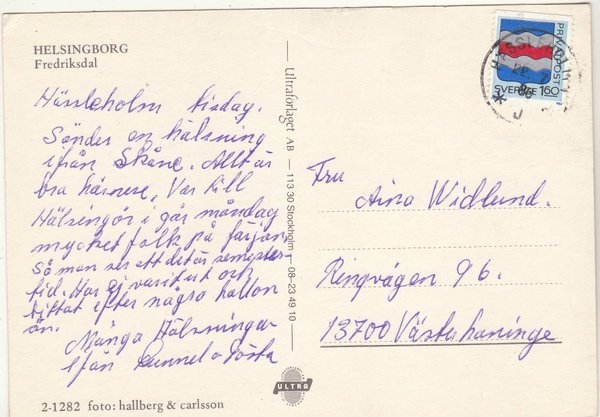 HELSINGBORG
Fredriksdal
Hässleholm tisdag.
Sänder en hälsning
ifrån Skåne. Allt är
bra härnere. Var till
Hälsingör i går måndag
mycket folk på färjan,
så man ser att det är semester-
tid. Har ej varit ut och
tittat efter några hallon
än.
Många Hälsningar
ifrån Gunnel o Gösta
2-1282 foto: hallberg & carlsson
Ultraförlaget AB — 113 30 Stockholm — 08-23 49 10
ULTRA
PRIVATPOST
SVERIGE 160
HÄSSLEHOLM
86
Fru
Aina Widlund.
Ringvägen 96.
13700 Västerhaninge